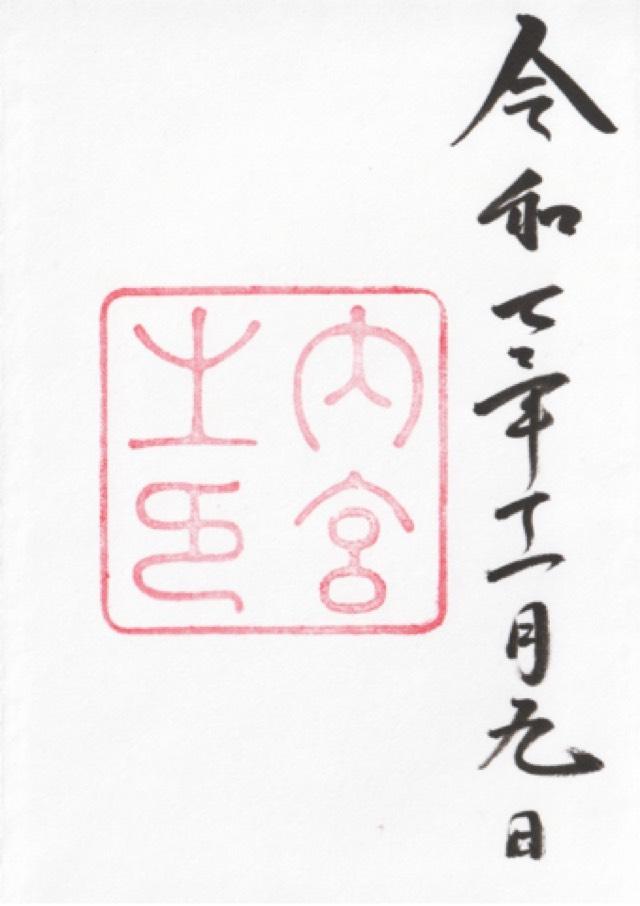 令和七年十一月九日
内宮之印